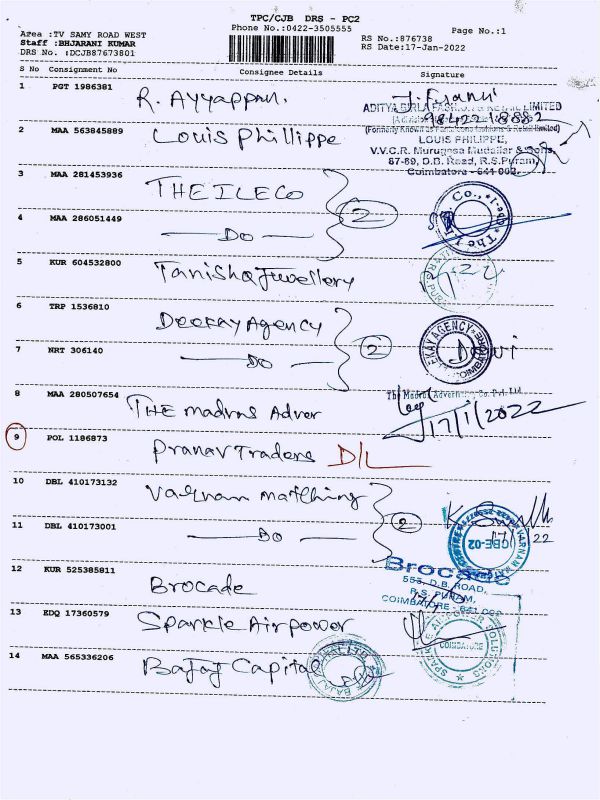 TPC/CJB DRS - PC2
Phone No.:0422-3505555
Page No.:1
Area :TV SAMY ROAD WEST
Staff :BHJARANI KUMAR
DRS No. :DCJB87673801
RS No.:876738
RS Date:17-Jan-2022
S No Consignment No Consignee Details Signature
1 PGT 1986381 R. Ayyappan.
ADITYA BIRLA FASHION & RETAIL LIMITED
98422 18882
(Formerly Known as Pantaloons Fashions & Retail Limited)
2 MAA 563845889 Louis Phillippe
LOUIS PHILIPPE,
V.V.C.R. Murugesa Mudaliar & Sons,
87-89, D.B. Road, R.S.Puram,
Coimbatore - 641 002.
3 MAA 281453936 THE ILECO
2
4 MAA 286051449 — DO —
5 KUR 604532800 Tanishq Jwellery
6 TRP 1536810 Deekay Agency
2
7 NRT 306140 — DO —
EKAY AGENCY
COIMBATORE
8 MAA 280507654 THE madras Adver
The Madras Advertising Co. Pvt. Ltd
17/1/2022
9 POL 1186873 Pranav Traders D/L
10 DBL 410173132 Varnam matching
2
11 DBL 410173001 — DO —
CBE-02
12 KUR 525385811 Brocade
Brocade
555, D.B. ROAD,
R.S. PURAM,
COIMBATORE - 641 002
13 EDQ 17360579 Sparkle Airpower
COIMBATORE
14 MAA 565336206 Bajaj Capital